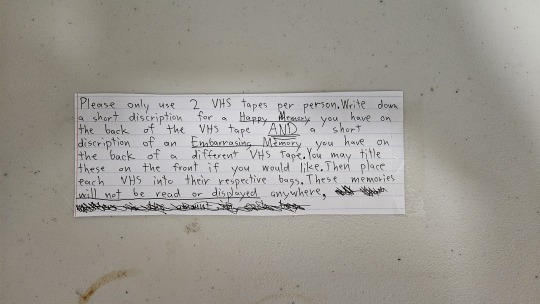 Please only use 2 VHS tapes per person. Write down
a short discription for a Happy Memory you have on
the back of the VHS tape AND a short
discription of an Embarrasing Memory you have on
the back of a different VHS tape. You may title
these on the front if you would like. Then place
each VHS into their respective bags. These memories
will not be read or displayed anywhere,